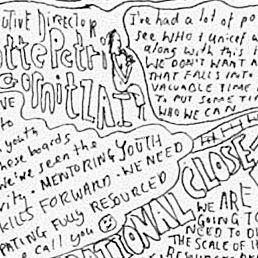 UTIVE DIRECTOR
otte Petri
Gornitzka
I've had a lot of po
see WHO & unicef w
along with this i
WE DON'T WANT A
THAT FALLS INTO
VALUABLE TIME
TO PUT SOME TI
WHO WE CAN
VE
to
youth
hese boards
we've seen the
vity. MENTORING YOUTH
KILLS FORWARD. WE NEED
PATING FULLY RESOURCED
e call you
RATIONAL CLOSE-
WE ARE
GOING TO
NEED TO D
THE SCALE OF